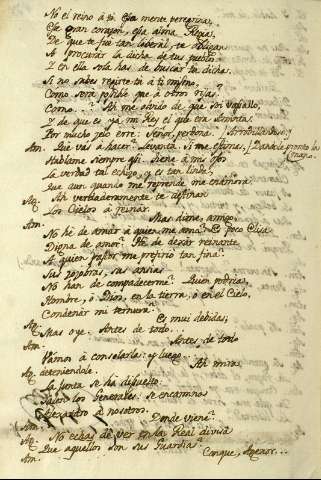 No el reino á tí. Esa mente peregrina,
Ese gran corazon, esa alma Regia,
De que te fue tan liberal, te obligan
A procurar la dicha de tus pueblos
Y en ella sola has de buscar tu dicha.
Si no sabes regirte tú á tí mismo,
Como será posible que á otros rijas?
Como...? Ah me olvido de que soi vasallo,
Y de que es ya mi Rey el que era Aminta.
Por mucho zelo erré: Señor, perdona. (Arrodillandose.)
Am. Que vas á hacer? Levanta. Si me estimas, (Dandole pronto la mano.
Hablame siempre asi. Tiene á mis ojos
La verdad tal echizo, y es tan linda,
Que aun quando me reprende me enamora.
Ag. Ah verdaderamente te destinan
Los Cielos á reinar.
Am. Mas dime, amigo,
No hé de amár á quien me ama? Es poco Elisa
Digna de amor? Hé de dexár reinante
A quien pastor me prefirió tan fina?
Sus zozobras, sus ansias
No han de compadecerme? Quien podria,
Hombre, ó Dios, en la tierra, ó en el Cielo,
Condenár mi ternura?
Ag. Es mui debida;
Mas oye. Antes de todo...
Am. Antes de todo
Vamos á consolarla: y luego...
Ag. deteniendole. Ah mira.
La junta se há disuelto.
Salen los Generales: se encamina
Alexandro á nosotros.
Am. Donde viene?
Ag. No echas de ver en la Real divisa
Que aquellos son sus Guardias?
Am. Conque, Agenor...